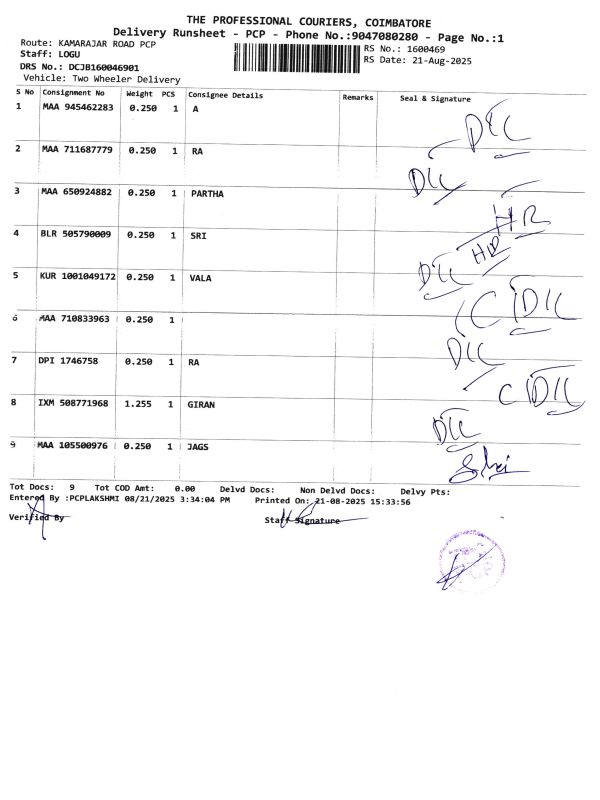 THE PROFESSIONAL COURIERS, COIMBATORE
Delivery Runsheet - PCP - Phone No.:9047080280 - Page No.:1
Route: KAMARAJAR ROAD PCP RS No.: 1600469
Staff: LOGU RS Date: 21-Aug-2025
DRS No.: DCJB160046901
Vehicle: Two Wheeler Delivery
S No Consignment No Weight PCS Consignee Details Remarks Seal & Signature
1 MAA 945462283 0.250 1 A
2 MAA 711687779 0.250 1 RA
3 MAA 650924882 0.250 1 PARTHA
HR
4 BLR 505790009 0.250 1 SRI
5 KUR 1001049172 0.250 1 VALA
6 MAA 710833963 0.250 1
7 DPI 1746758 0.250 1 RA
8 IXM 508771968 1.255 1 GIRAN
9 MAA 105500976 0.250 1 JAGS
Tot Docs: 9 Tot COD Amt: 0.00 Delvd Docs: Non Delvd Docs: Delvy Pts:
Entered By :PCPLAKSHMI 08/21/2025 3:34:04 PM Printed On: 21-08-2025 15:33:56
Verified By Staff Signature